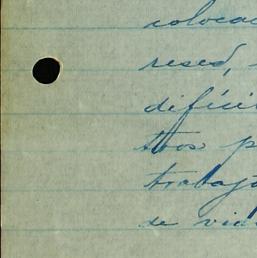 coloca
resed,
difíci
tros p
trabajo
de vid